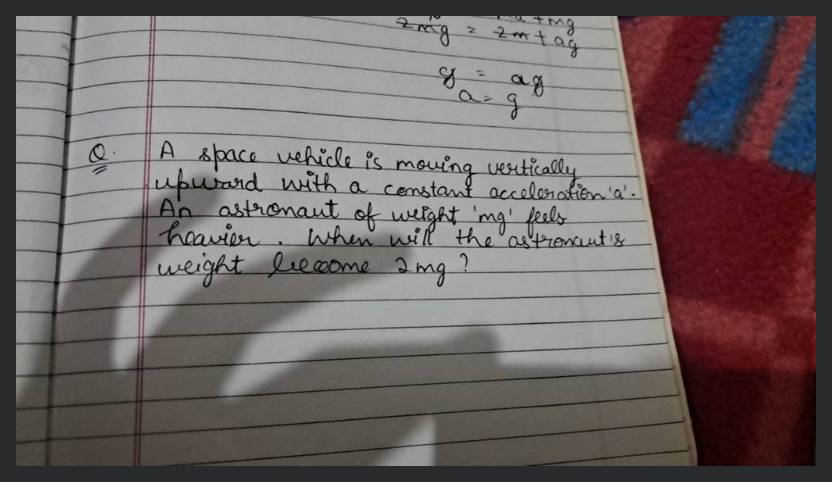 +mg
2mg = 2m + ag
g = ag
a = g
Q. A space vehicle is moving vertically
upward with a constant acceleration 'a'.
An astronaut of weight 'mg' feels
heavier. When will the astronaut's
weight become 2mg?